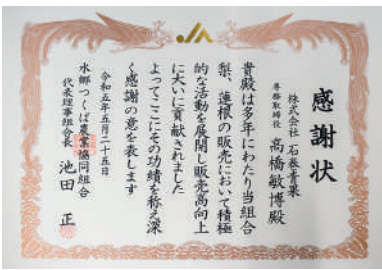 感謝状
株式会社 石巻青果
専務取締役 高橋敏博殿
貴殿は多年にわたり当組合
梨、蓮根の販売において積極
的な活動を展開し販売高向上
に大いに貢献されました
よってここにその功績を称え深
く感謝の意を表します
令和五年五月二十五日
水郷つくば農業協同組合
代表理事組合長 池田 正